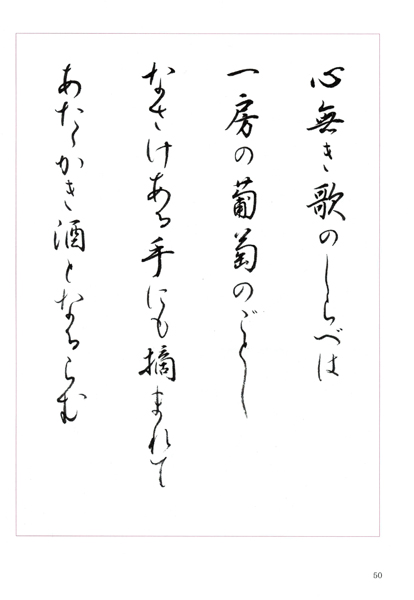 心無き歌のしらべは
一房の葡萄のごとし
なさけある手にも摘まれて
あたゝかき酒となるらむ
50